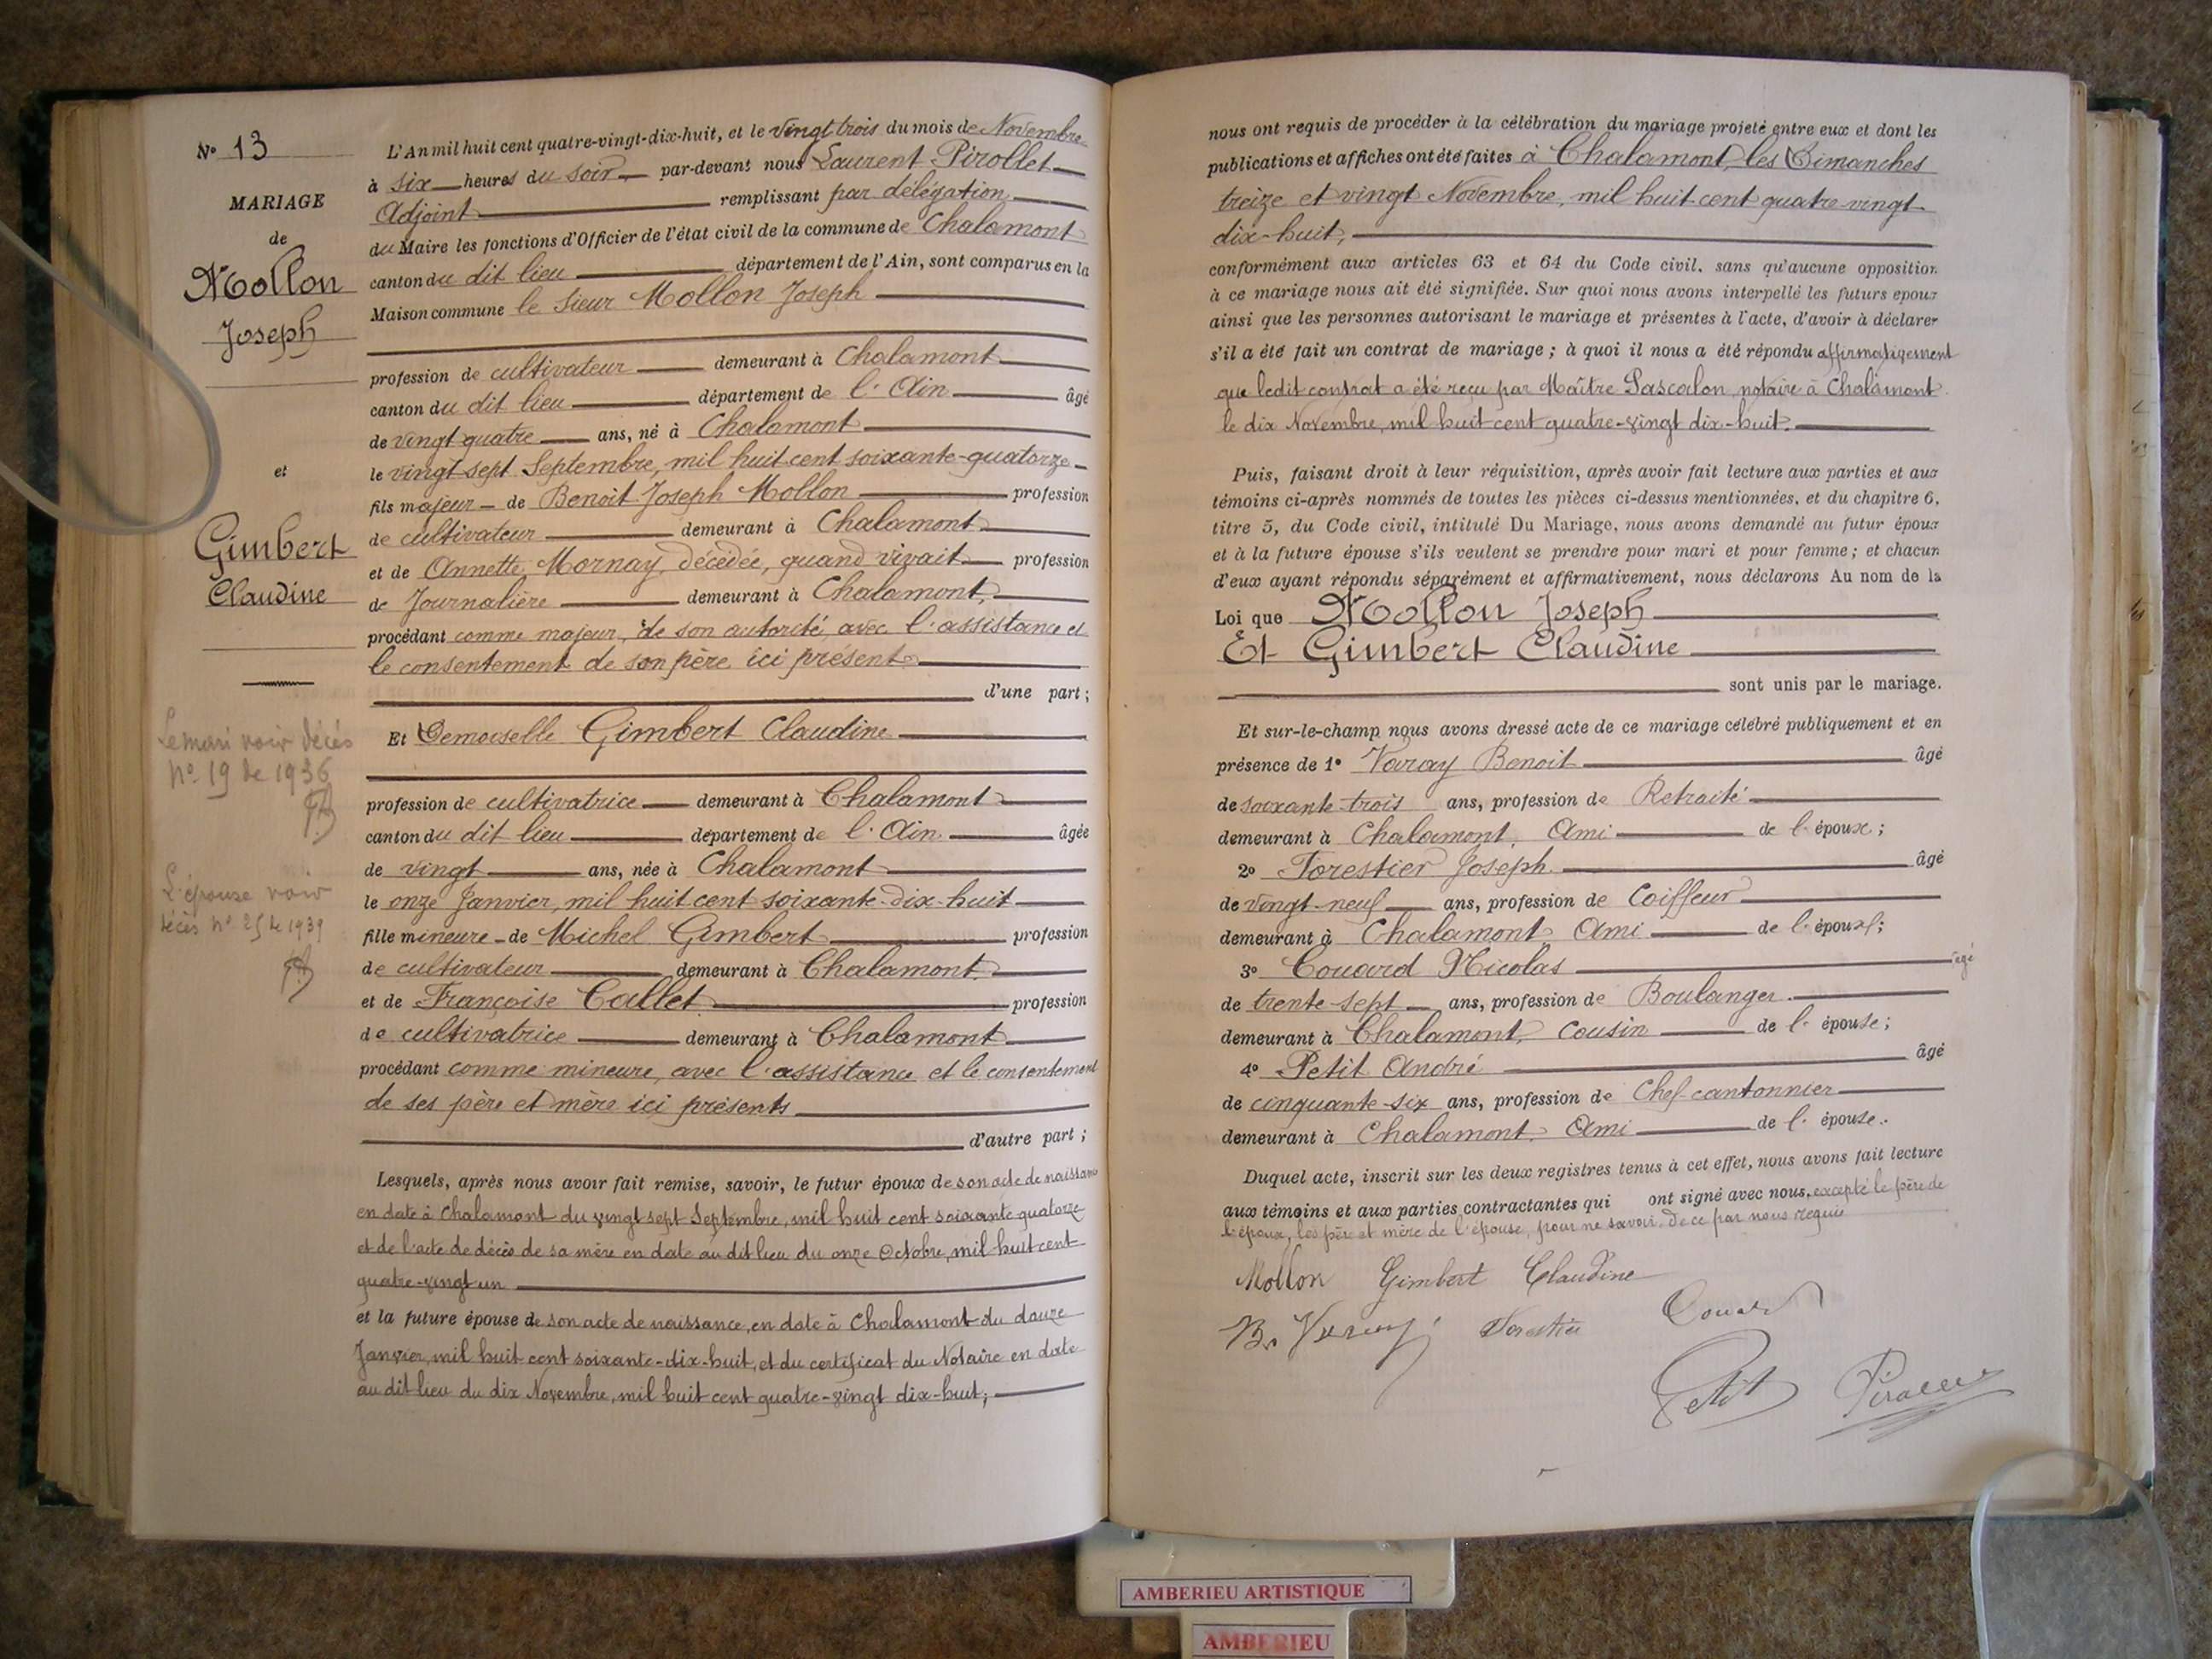 N° 13
MARIAGE
de
Mollon
Joseph
et
Gimbert
Claudine
Le mari voir décès
N° 19 de 1936
L'épouse voir
décès n° 25 de 1939
L'An mil huit cent quatre-vingt-dix-huit, et le vingt trois du mois de Novembre
à six heures du soir par-devant nous Laurent Pirollet
Adjoint remplissant par délégation
du Maire les fonctions d'Officier de l'état civil de la commune de Chalamont
canton du dit lieu département de l'Ain, sont comparus en la
Maison commune le sieur Mollon Joseph
profession de cultivateur demeurant à Chalamont
canton du dit lieu département de l'Ain âgé
de vingt quatre ans, né à Chalamont
le vingt sept Septembre, mil huit cent soixante-quatorze
fils majeur de Benoit Joseph Mollon profession
de cultivateur demeurant à Chalamont
et de Annette Mornay, décédée, quand vivait profession
de Journalière demeurant à Chalamont,
procédant comme majeur, de son autorité, avec l'assistance et
le consentement de son père ici présent
d'une part;
Et Demoiselle Gimbert Claudine
profession de cultivatrice demeurant à Chalamont
canton du dit lieu département de l'Ain âgée
de vingt ans, née à Chalamont
le onze Janvier, mil huit cent soixante-dix-huit
fille mineure de Michel Gimbert profession
de cultivateur demeurant à Chalamont
et de Françoise Callet profession
de cultivatrice demeurant à Chalamont
procédant comme mineure, avec l'assistance et le consentement
de ses père et mère ici présents
d'autre part;
Lesquels, après nous avoir fait remise, savoir, le futur époux de son acte de naissance
en date à Chalamont du vingt sept Septembre, mil huit cent soixante quatorze
et de l'acte de décès de sa mère en date au dit lieu du onze Octobre, mil huit cent
quatre-vingt un
et la future épouse de son acte de naissance, en date à Chalamont du douze
Janvier, mil huit cent soixante-dix-huit, et du certificat du Notaire en date
au dit lieu du dix Novembre, mil huit cent quatre-vingt dix-huit;
nous ont requis de procéder à la célébration du mariage projeté entre eux et dont les
publications et affiches ont été faites à Chalamont, les Dimanches
treize et vingt Novembre, mil huit cent quatre-vingt
dix-huit,
conformément aux articles 63 et 64 du Code civil, sans qu'aucune opposition
à ce mariage nous ait été signifiée. Sur quoi nous avons interpellé les futurs époux
ainsi que les personnes autorisant le mariage et présentes à l'acte, d'avoir à déclarer
s'il a été fait un contrat de mariage; à quoi il nous a été répondu affirmativement
que ledit contrat a été reçu par Maître Pascalon, notaire à Chalamont
le dix Novembre, mil huit cent quatre-vingt dix-huit.
Puis, faisant droit à leur réquisition, après avoir fait lecture aux parties et aux
témoins ci-après nommés de toutes les pièces ci-dessus mentionnées, et du chapitre 6,
titre 5, du Code civil, intitulé Du Mariage, nous avons demandé au futur époux
et à la future épouse s'ils veulent se prendre pour mari et pour femme; et chacun
d'eux ayant répondu séparément et affirmativement, nous déclarons Au nom de la
Loi que Mollon Joseph
Et Gimbert Claudine
sont unis par le mariage.
Et sur-le-champ nous avons dressé acte de ce mariage célébré publiquement et en
présence de 1° Varay Benoit âgé
de soixante-trois ans, profession de Retraité
demeurant à Chalamont, Ami de l'époux;
2° Forestier Joseph âgé
de vingt-neuf ans, profession de Coiffeur
demeurant à Chalamont Ami de l'époux;
3° Couard Nicolas âgé
de trente-sept ans, profession de Boulanger
demeurant à Chalamont, cousin de l'épouse;
4° Petit André âgé
de cinquante-six ans, profession de Chef-cantonnier
demeurant à Chalamont, Ami de l'épouse.
Duquel acte, inscrit sur les deux registres tenus à cet effet, nous avons fait lecture
aux témoins et aux parties contractantes qui ont signé avec nous, excepté le père de
l'époux, les père et mère de l'épouse, pour ne savoir, de ce par nous requis
Mollon Gimbert Claudine
B. Varay Forestier Couard
Petit Pirollet
AMBERIEU ARTISTIQUE
AMBERIEU